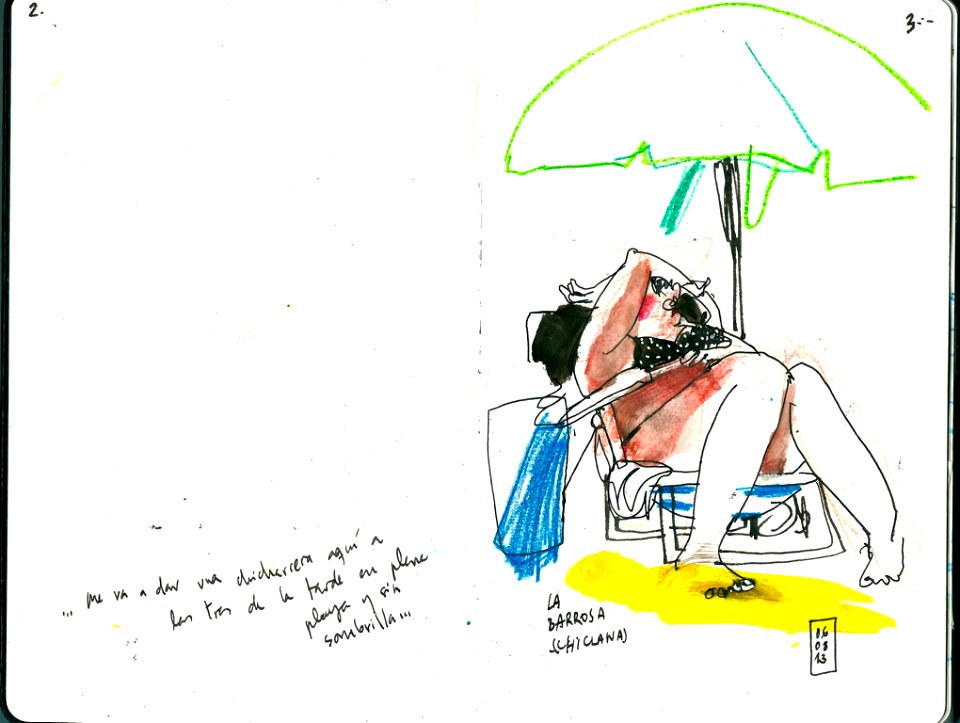 2.
... me va a dar una chicharrera aquí a
las tres de la tarde en plena
playa y sin
sombrilla...
3.-
LA
BARROSA
(CHICLANA)
06
08
13